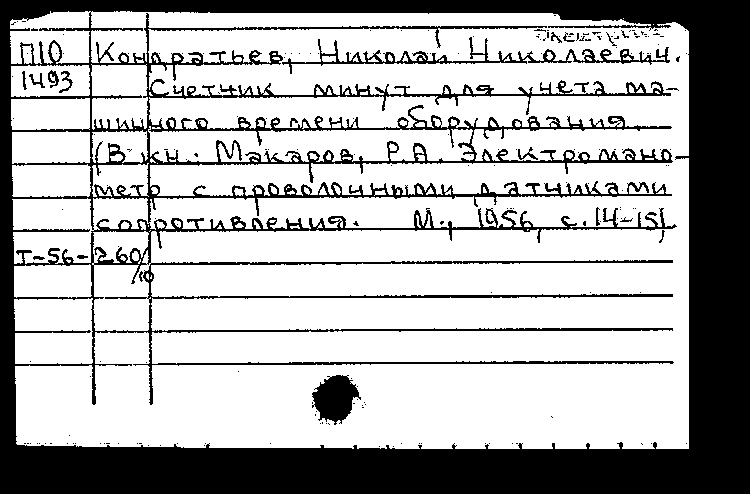 П10 Кондратьев, Николай Николаевич.
1493 Счетчик минут для учета ма-
шинного времени оборудования.
(В кн.: Макаров, Р.А. Электромано-
метр с проволочными датчиками
сопротивления. М., 1956, с. 14-15)
Т-56-260/10